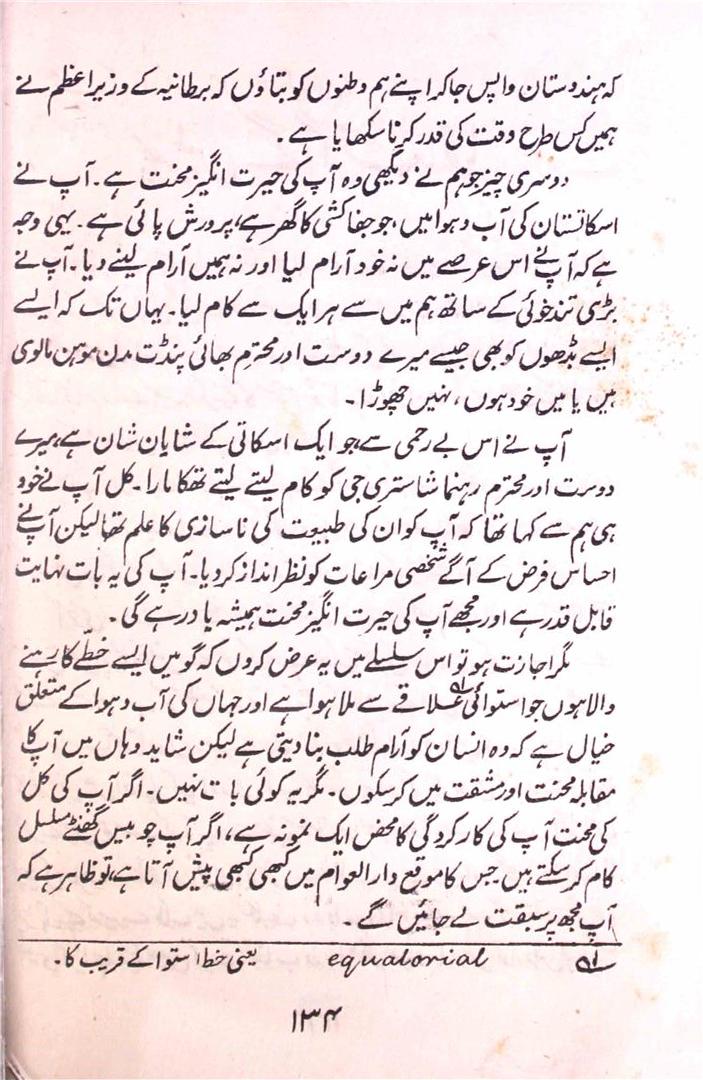 کہ ہندوستان واپس جاکر اپنے ہم وطنوں کو بتاؤں کہ برطانیہ کے وزیراعظم نے
ہمیں کس طرح وقت کی قدر کرنا سکھایا ہے۔
دوسری چیز جو ہم نے دیکھی وہ آپ کی حیرت انگیز محنت ہے۔ آپ نے
اسکاتستان کی آب و ہوا میں، جو جفاکشی کا گھر ہے، پرورش پائی ہے۔ یہی وجہ
ہے کہ آپ نے اس عرصے میں نہ خود آرام لیا اور نہ ہمیں آرام لینے دیا۔ آپ نے
بڑی تندخوئی کے ساتھ ہم میں سے ہر ایک سے کام لیا۔ یہاں تک کہ ایسے
ایسے بڈھوں کو بھی جیسے میرے دوست اور محترم بھائی پنڈت مدن موہن مالوی
ہیں یا میں خود ہوں، نہیں چھوڑا۔
آپ نے اس بے رحمی سے، جو ایک اسکاتی کے شایان شان ہے، میرے
دوست اور محترم رہنما شاستری جی کو کام لیتے لیتے تھکا مارا۔ کل آپ نے خود
ہی ہم سے کہا تھا کہ آپ کو ان کی طبیعت کی ناسازی کا علم تھا لیکن آپ نے
احساس فرض کے آگے شخصی مراعات کو نظر انداز کر دیا۔ آپ کی یہ بات نہایت
قابل قدر ہے اور مجھے آپ کی حیرت انگیز محنت ہمیشہ یاد رہے گی۔
مگر اجازت ہو تو اس سلسلے میں یہ عرض کروں کہ گو میں ایسے خطّے کا رہنے
والا ہوں جو استوائی۱؎ علاقے سے ملا ہوا ہے اور جہاں کی آب و ہوا کے متعلق
خیال ہے کہ وہ انسان کو آرام طلب بنا دیتی ہے لیکن شاید وہاں میں آپ کا
مقابلہ محنت اور مشقت میں کر سکوں۔ مگر یہ کوئی بات نہیں۔ اگر آپ کی کل
کی محنت آپ کی کارکردگی کا محض ایک نمونہ ہے، اگر آپ چوبیس گھنٹے مسلسل
کام کر سکتے ہیں جس کا موقع دارالعوام میں کبھی کبھی پیش آتا ہے، تو ظاہر ہے کہ
آپ مجھ پر سبقت لے جائیں گے۔
۱؎ equatorial یعنی خط استوا کے قریب کا۔
۱۳۴